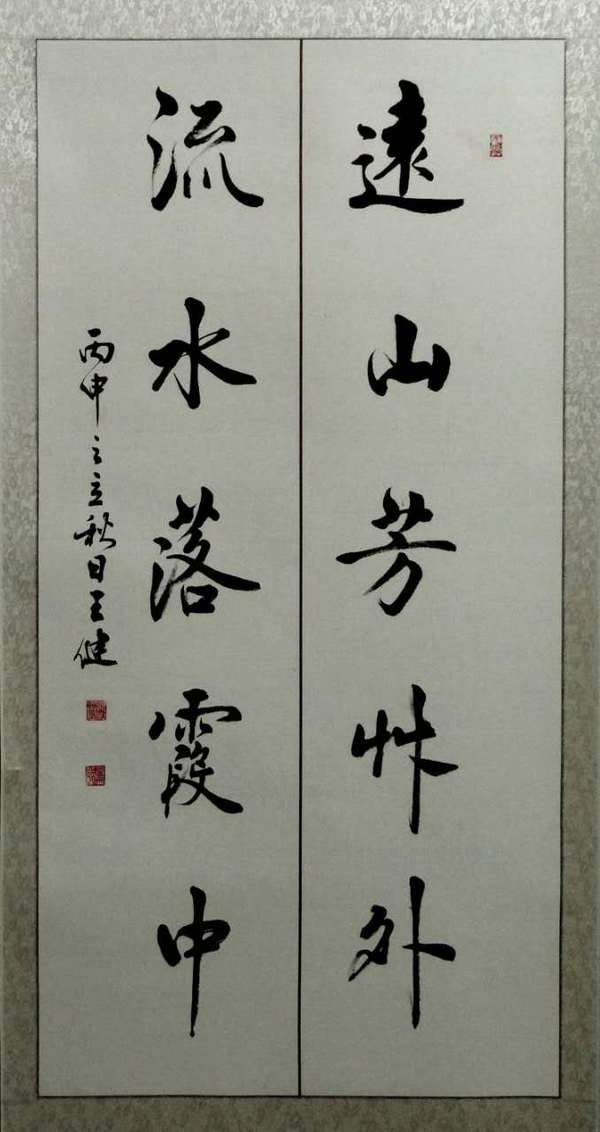 遠山芳艸外
流水落霞中
丙申之立秋日王健